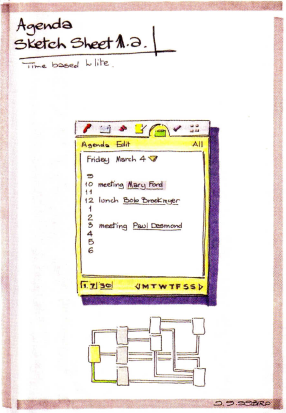 Agenda
Sketch Sheet 1.a.
Time based
Agenda Edit All
Friday March 4
9
10 meeting Mary Ford
11
12 lunch Bob
1
2
3 meeting Paul Desmond
4
5
6
1. 7 30 M T W T F S S